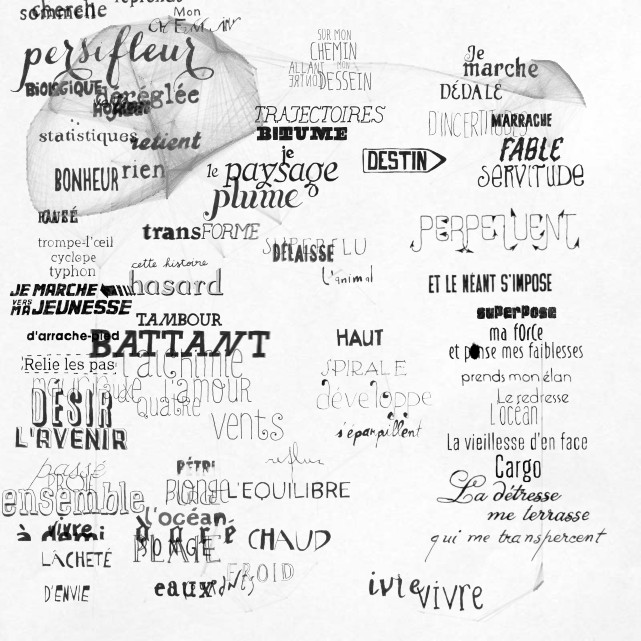 cherche
somenche
reprends
Mon
CHEMIN
persifleur
BIOLOGIQUE
déréglée
statistiques
retient
BONHEUR
rien
SUR MON
CHEMIN
ALLANT
MON
CONTRE
DESSEIN
TRAJECTOIRES
BITUME
je
le paysage
plume
DESTIN
Je
marche
DÉDALE
D'INCERTITUDES
M'ARRACHE
FABLE
SERVITUDE
PERPETUENT
ET LE NÉANT S'IMPOSE
superpose
ma force
et panse mes faiblesses
prends mon élan
Le redresse
L'océan
La vieillesse d'en face
Cargo
La détresse
me terrasse
qui me transpercent
transFORME
SUPERFLU
DÉLAISSE
L'animal
trompe-l'œil
cyclope
typhon
cette histoire
hasard
JE MARCHE
VERS
MA JEUNESSE
TAMBOUR
BATTANT
d'arrache-pied
Relie les pas
l'alchimie
l'amour
quatre
vents
DÉSIR
L'AVENIR
HAUT
SPIRALE
développe
s'éparpillent
reflux
passé
PROIE
ensemble
vivre
à demi
LÂCHETÉ
D'ENVIE
PÉTRI
plonge
L'EQUILIBRE
l'océan
doré
PLAGE
CHAUD
FROID
eaux
ivre
vivre